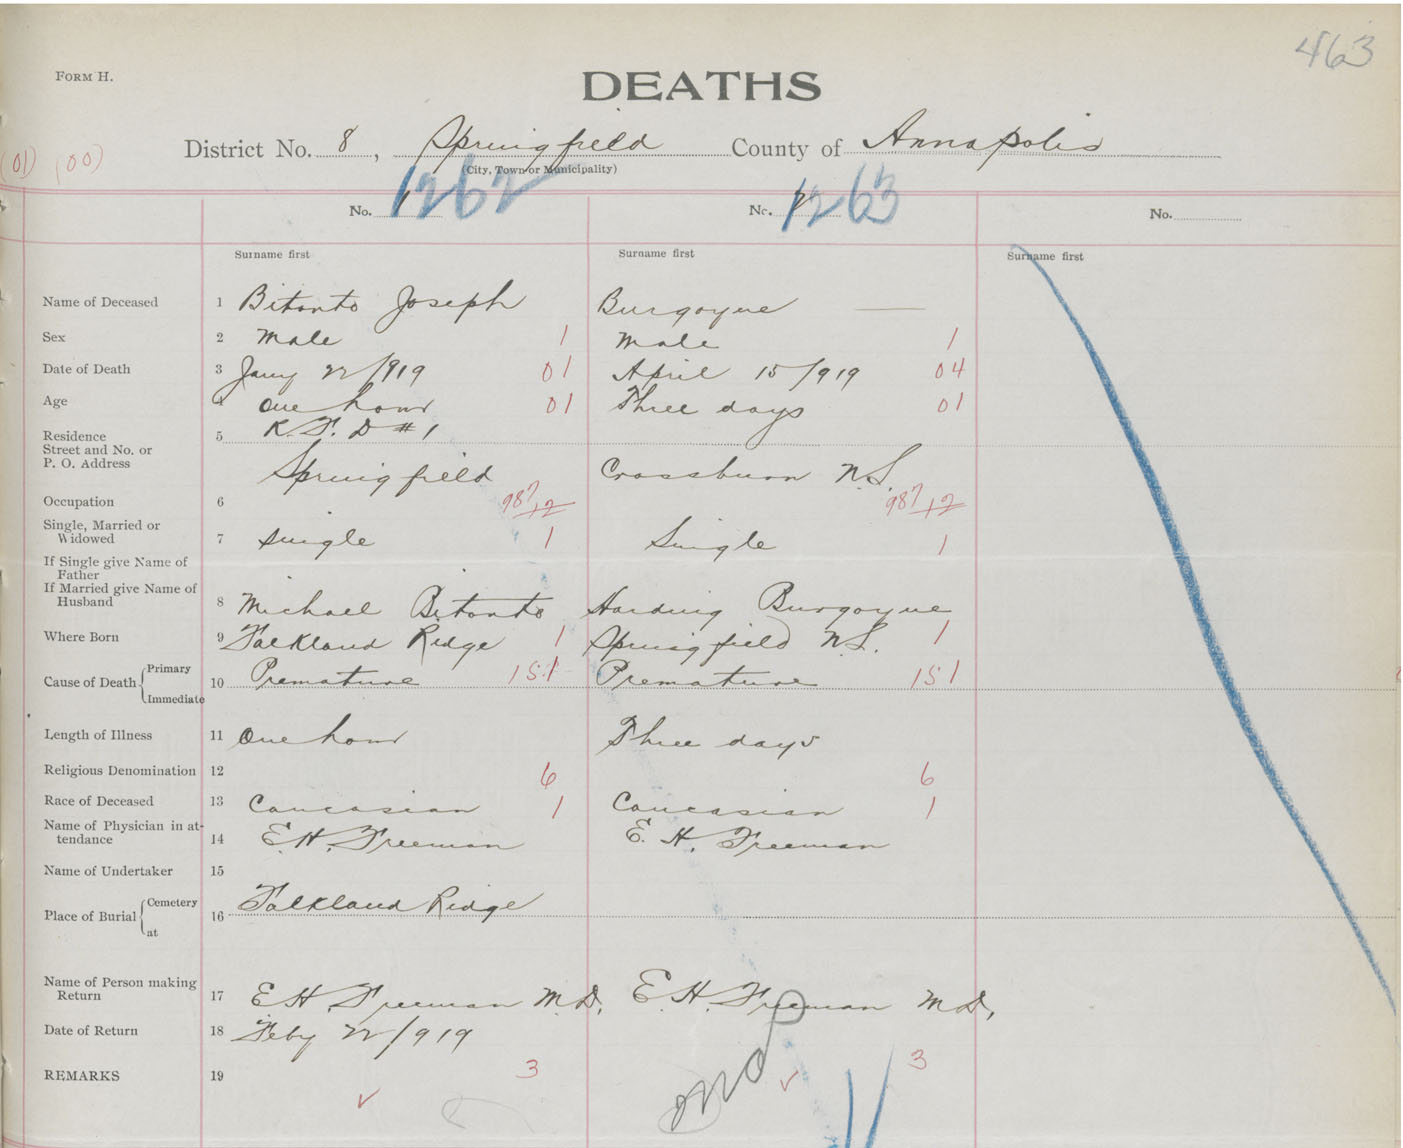 463
FORM H.
DEATHS
(01) (00) District No. 8, Springfield County of Annapolis
(City, Town or Municipality)
No. 1 1262 No. 2 1263 No.
Surname first Surname first Surname first
Name of Deceased 1 Bitonto Joseph Burgoyne —
Sex 2 Male 1 Male 1
Date of Death 3 Jany 22/919 01 April 15/919 04
Age 4 One hour 01 Three days 01
Residence 5 R.F.D #1
Street and No. or
P. O. Address Springfield Crossburn N.S.
Occupation 6 987 12 987 12
Single, Married or
Widowed 7 Single 1 Single 1
If Single give Name of
Father
If Married give Name of
Husband 8 Michael Bitonto Harding Burgoyne
Where Born 9 Falkland Ridge 1 Springfield N.S. 1
Cause of Death { Primary 10 Premature 151 Premature 151
Immediate
Length of Illness 11 One hour Three days
Religious Denomination 12 6 6
Race of Deceased 13 Caucasian 1 Caucasian 1
Name of Physician in at-
tendance 14 E.H. Freeman E. H. Freeman
Name of Undertaker 15
Place of Burial { Cemetery 16 Falkland Ridge
at
Name of Person making
Return 17 E H. Freeman M.D. E. H. Freeman M.D.
Date of Return 18 Feby 22/919
REMARKS 19 3 3